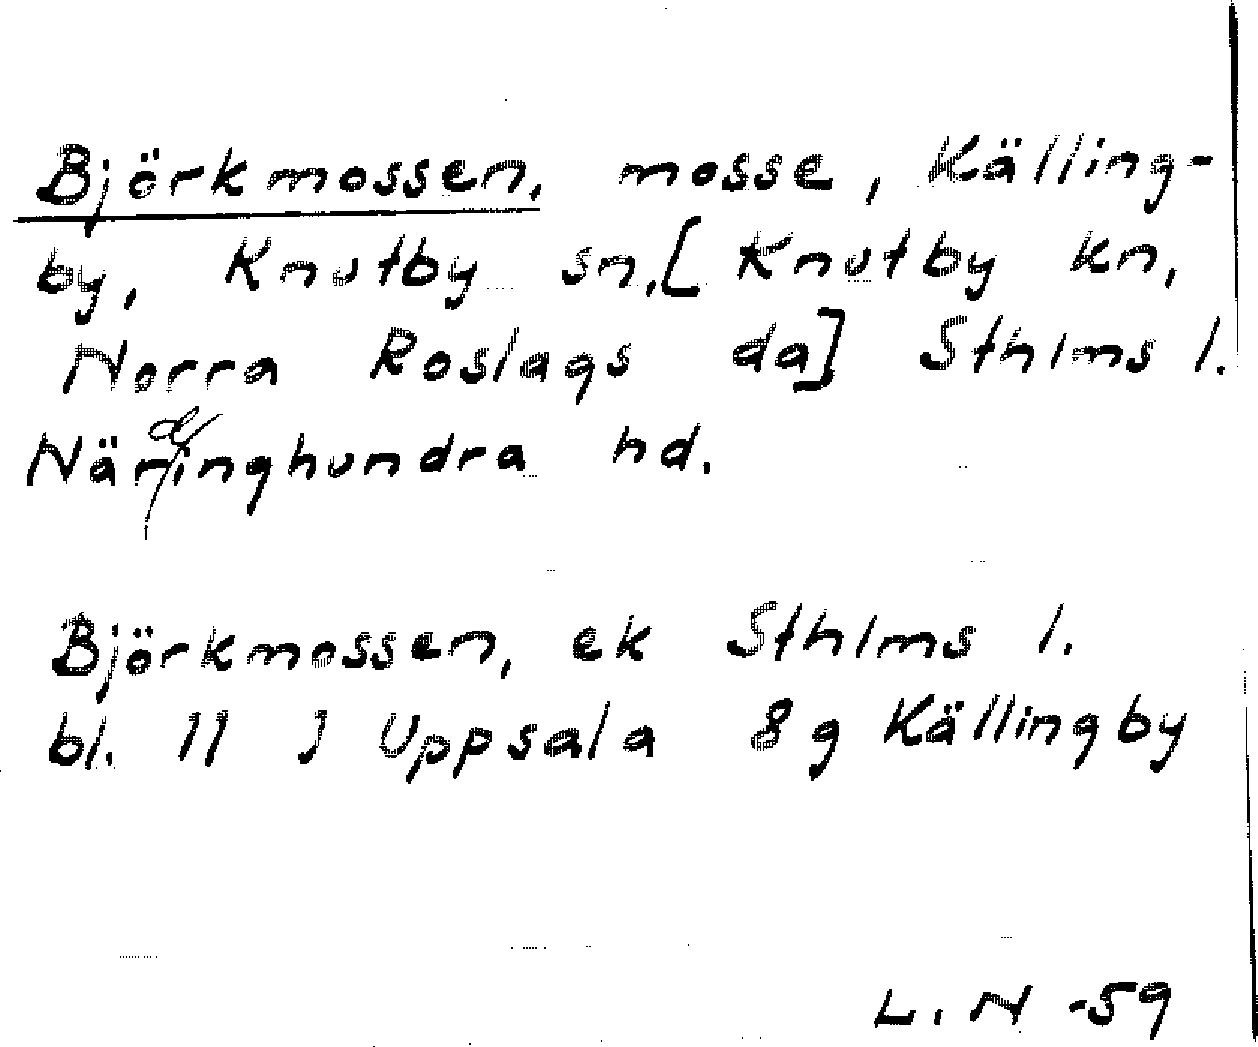 Björkmossen, mosse, Källing-
by, Knutby sn, [Knutby kn,
Norra Roslags da] Sthlms l.
Närdinghundra hd.
Björkmossen, ek Sthlms l.
bl. 11 J Uppsala 8g Källingby
L. N -59